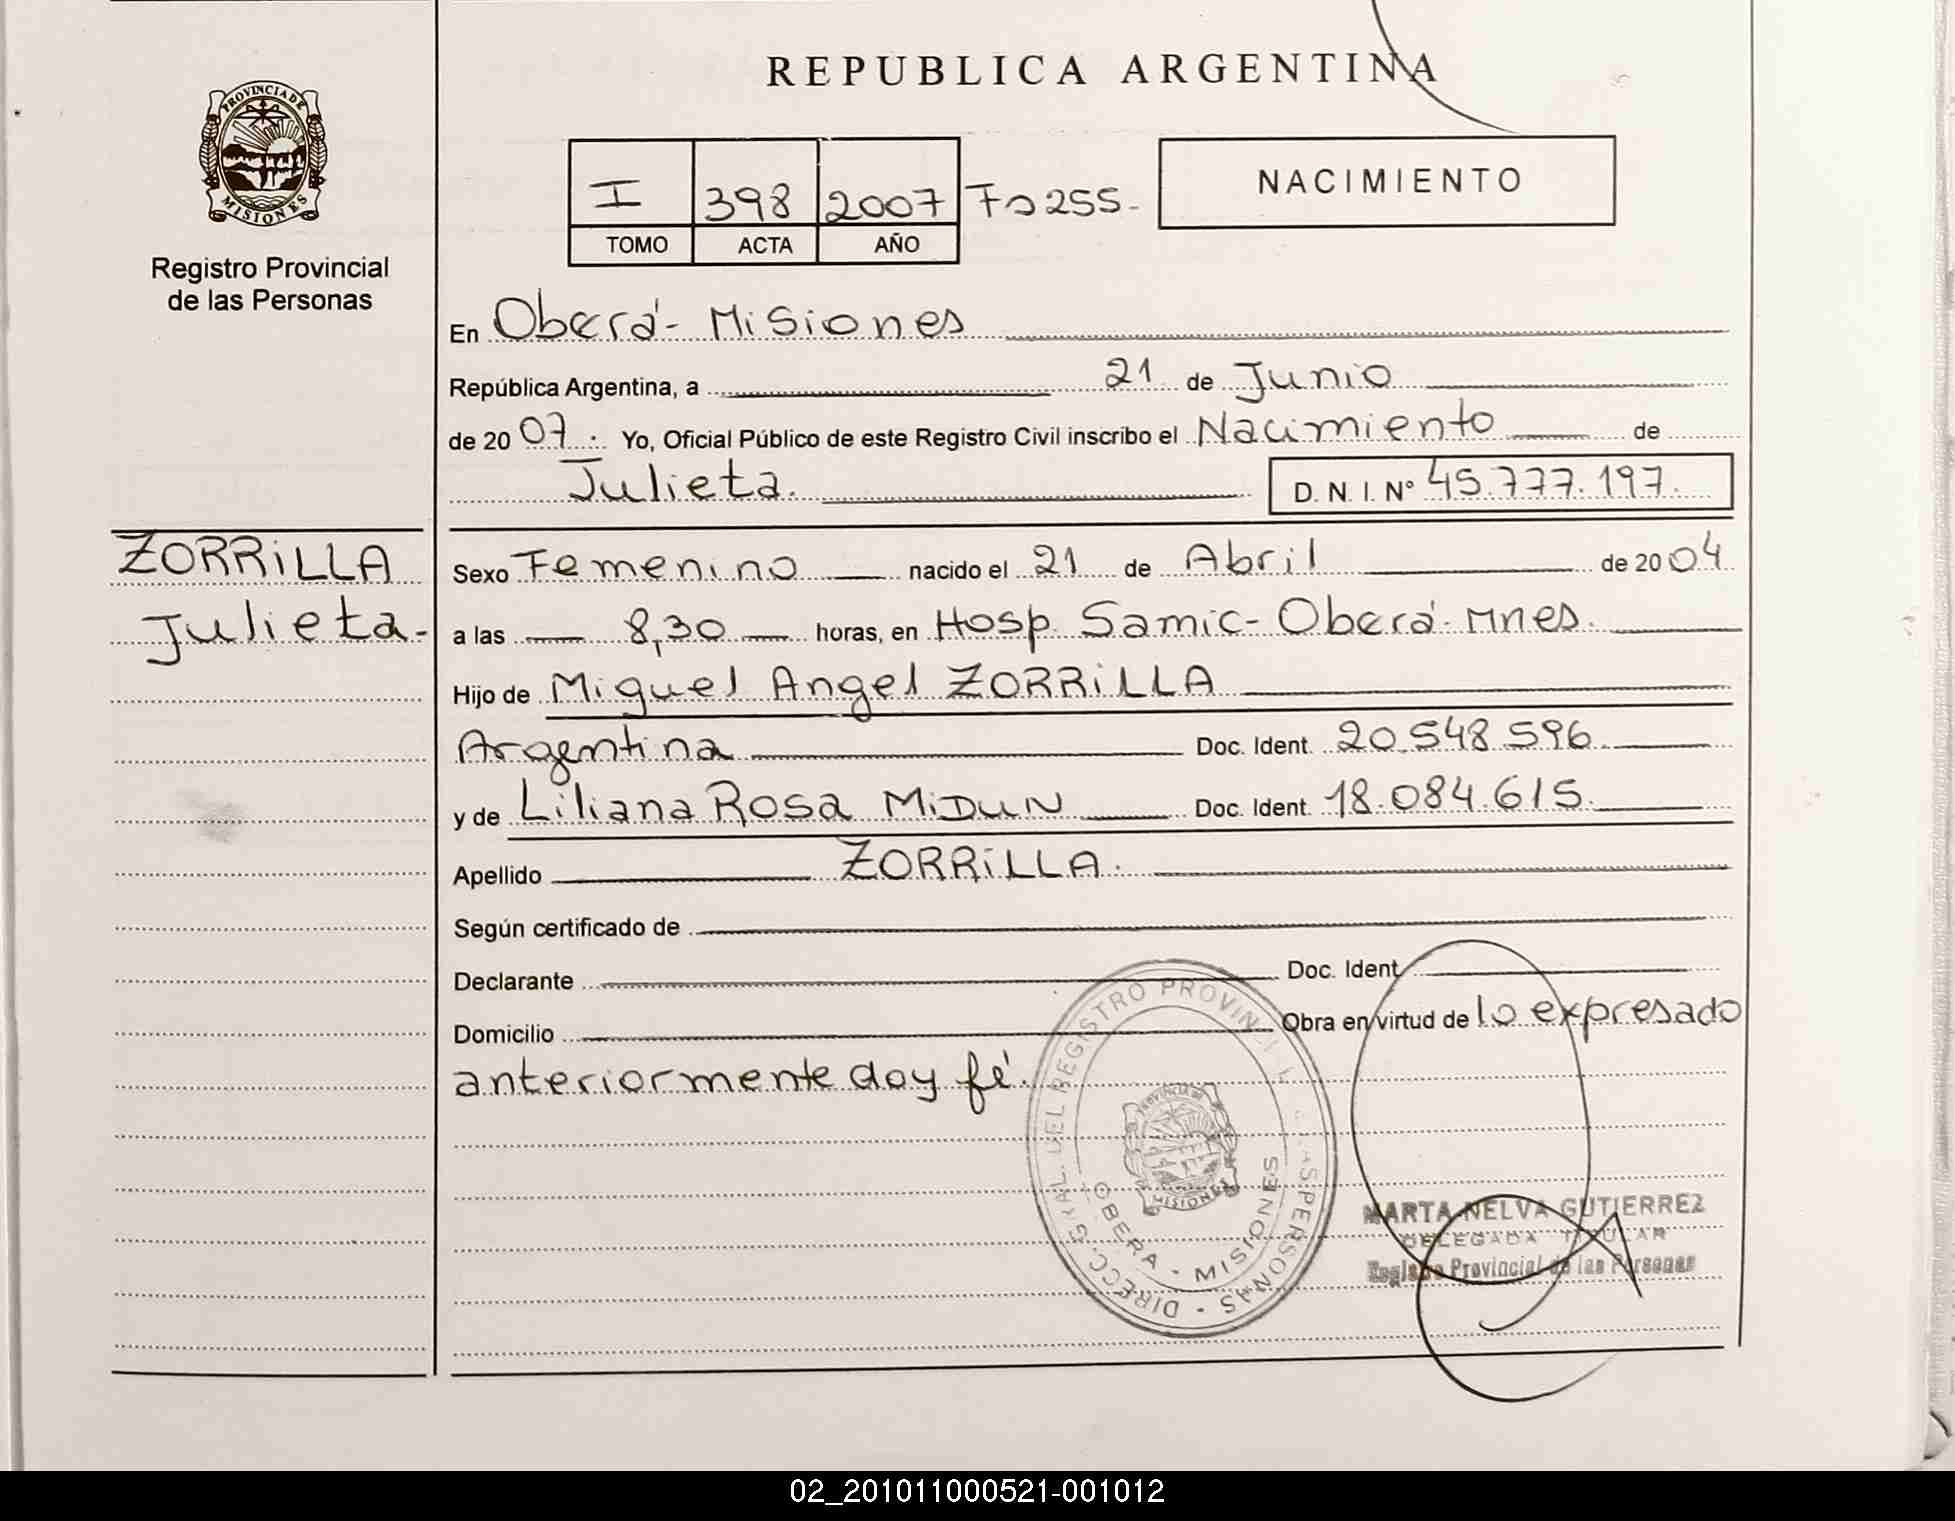 REPUBLICA ARGENTINA
PROVINCIA DE
MISIONES
Registro Provincial
de las Personas
I 398 2007 Fo 255.-
TOMO ACTA AÑO
NACIMIENTO
En Oberá - Misiones
República Argentina, a 21 de Junio
de 2007. Yo, Oficial Público de este Registro Civil inscribo el Nacimiento de
Julieta. D. N. I. N° 45.777.197.
ZORRiLLA
Julieta.-
Sexo Femenino nacido el 21 de Abril de 2004
a las 8,30 horas, en Hosp. Samic - Oberá - Mnes.
Hijo de Miguel Angel ZORRiLLA
Argentina Doc. Ident. 20.548.596.
y de Liliana Rosa MiDUN Doc. Ident. 18.084.615.
Apellido ZORRiLLA.
Según certificado de
Declarante Doc. Ident.
Domicilio Obra en virtud de lo expresado
anteriormente doy fé.
DIRECC. GRAL. DEL REGISTRO PROVINCIAL PERSONAS -
OBERA - MISIONES
MISIONES
MARTA NELVA GUTIERREZ
DELEGADA TITULAR
Registro Provincial de las Personas
02_201011000521-001012